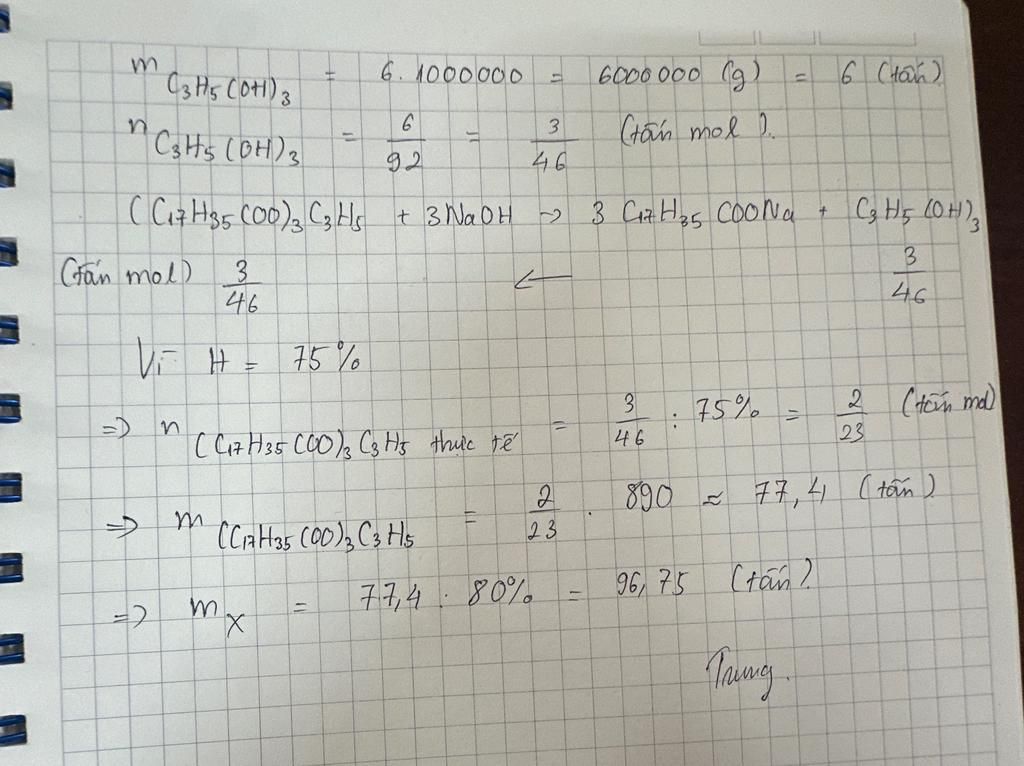 m C3H5(OH)3 = 6.1000000 = 6000000 (g) = 6 (tấn)
n C3H5(OH)3 = 6/92 = 3/46 (tấn mol).
(C17H35COO)3C3H5 + 3NaOH -> 3 C17H35COONa + C3H5(OH)3
(tấn mol) 3/46 ← 3/46
Vì H = 75%
=> n (C17H35COO)3C3H5 thực tế = 3/46 : 75% = 2/23 (tấn mol)
=> m (C17H35COO)3C3H5 = 2/23 . 890 ≈ 77,4 (tấn)
=> m X = 77,4 : 80% = 96,75 (tấn)
Trung.